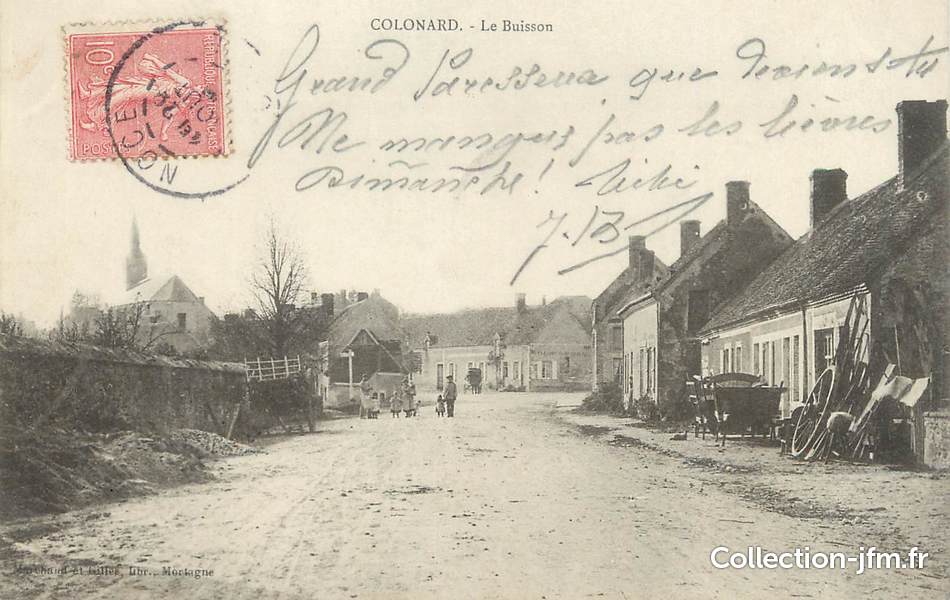 COLONARD. - Le Buisson
10c
REPUBLIQUE FRANCAISE
POSTES
NOCE
Grand Paresseux que deviens tu
Ne mangus pas les lièvres
Dimanche!
7. B
Marchand et Gilles, libr., Mortagne
Collection-jfm.fr